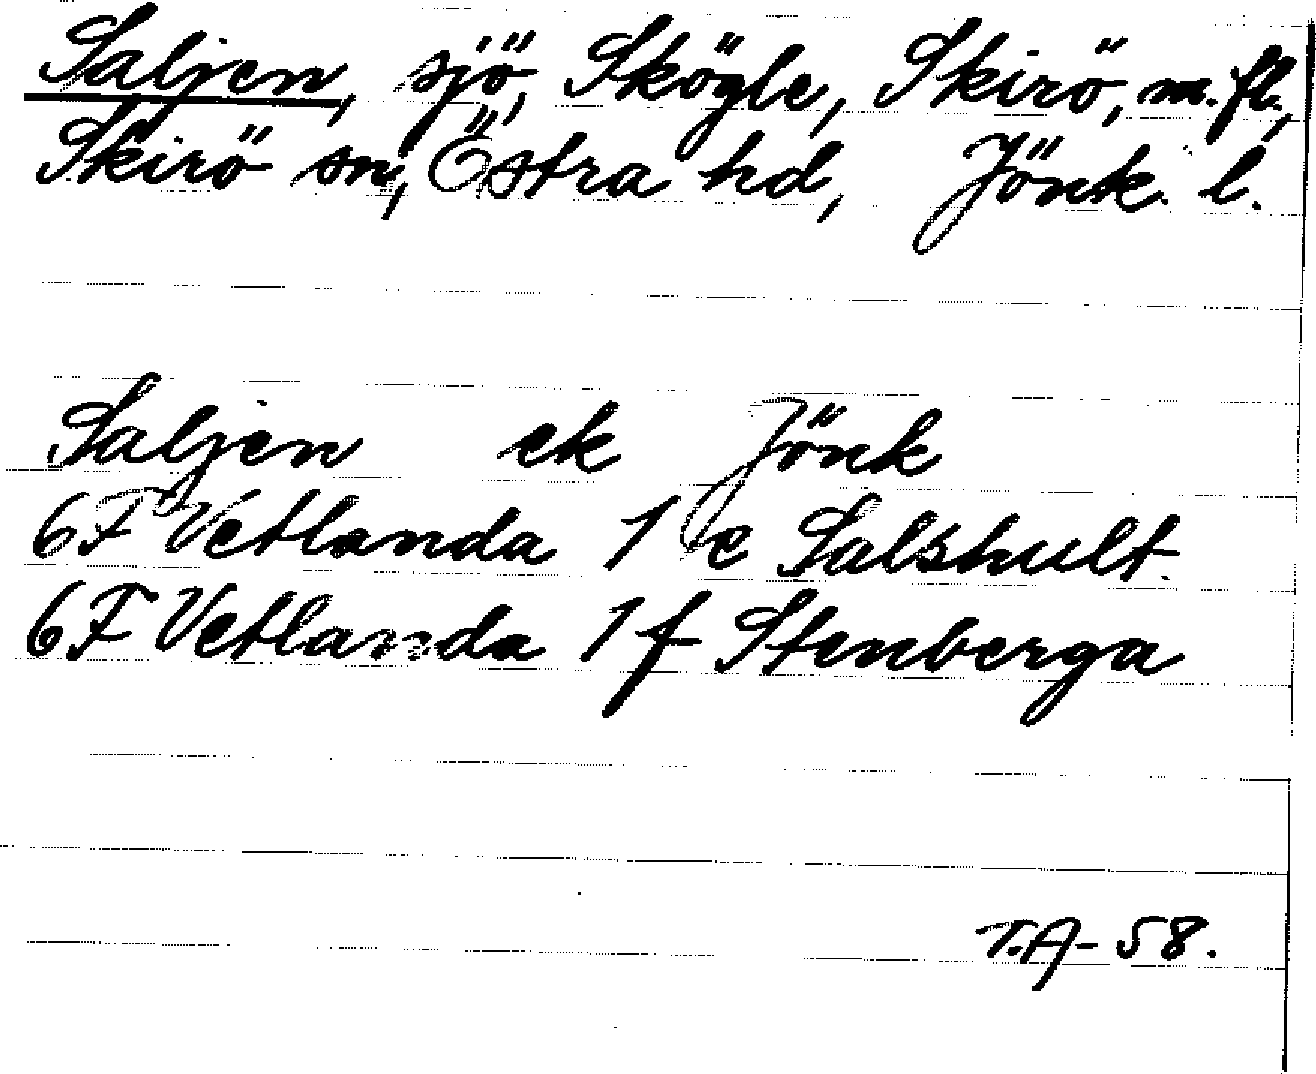 Saljen, sjö, Skögle, Skirö, m.fl.,
Skirö sn, Östra hd, Jönk. l.
Saljen ek Jönk
6F Vetlanda 1 e Salshult.
6F Vetlanda 1 f Stenberga
T.A-58.